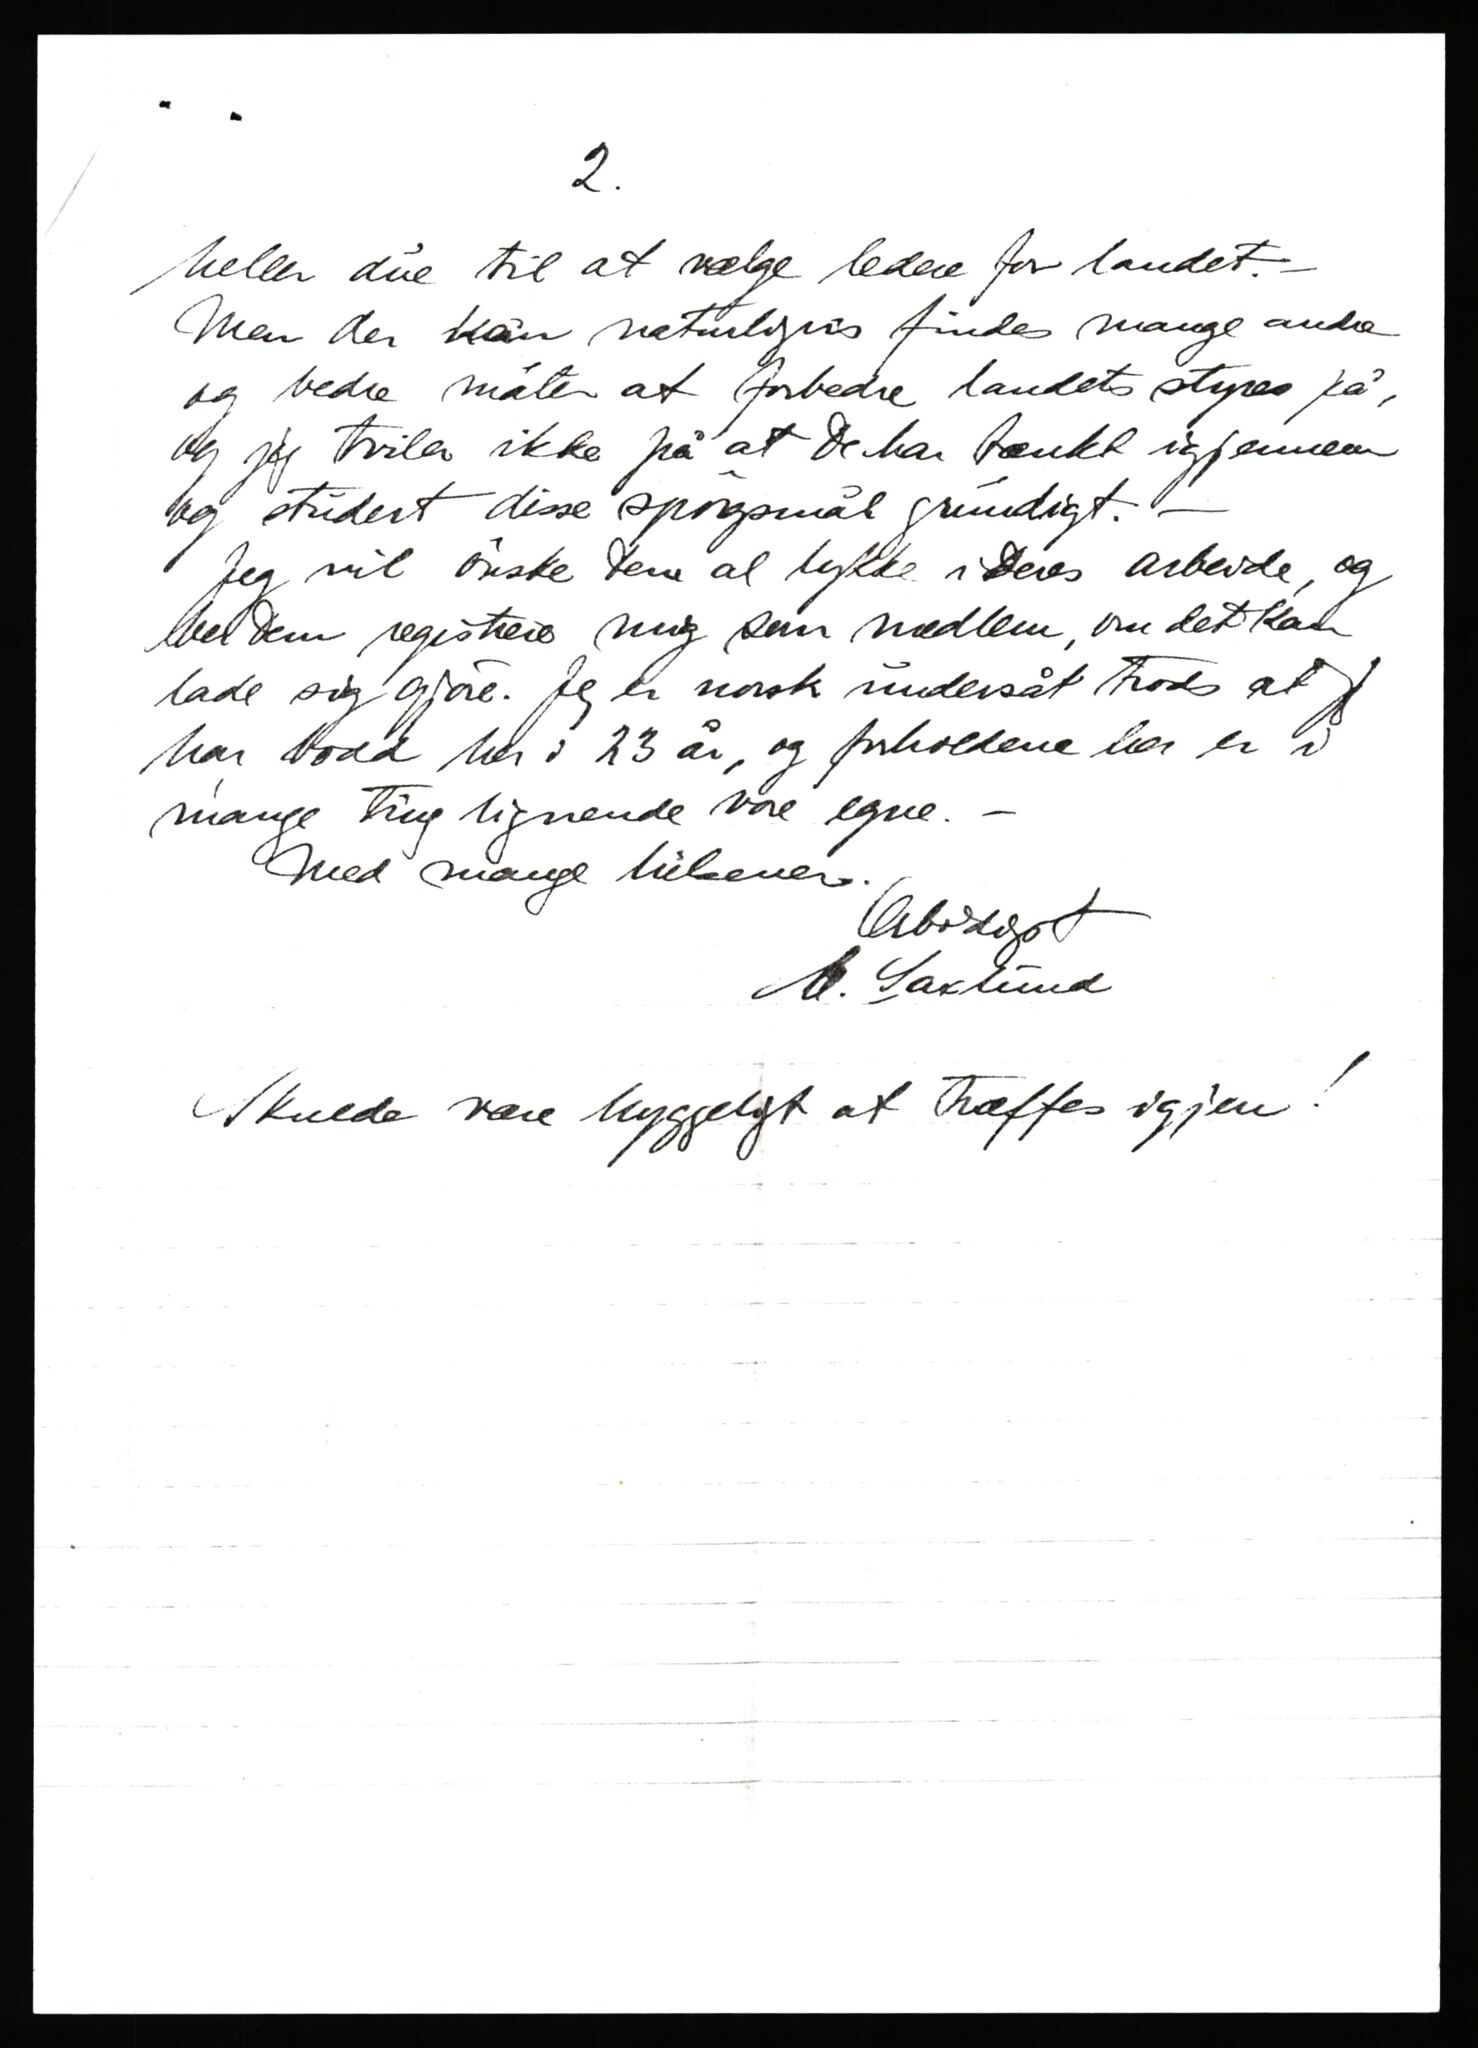 2.
heller due til at vælge ledere for landet. –
Men der kan naturligvis findes mange andre
og bedre måter at forbedre landets styres på,
og jeg tviler ikke på at De har tænkt igjennem
og studert disse spörgsmål grundigt. –
Jeg vil önske Dem al lykke i Deres arbeide, og
ber Dem registrere mig som medlem, om det kan
lade sig gjöre. Jeg er norsk undersåt trods at jeg
har bodd her i 23 år, og forholdene her er i
mange ting lignende vore egne. –
Med mange hilsener.
Ærbödigst
M. Saxlund
Skulde være hyggeligt at træffes igjen!